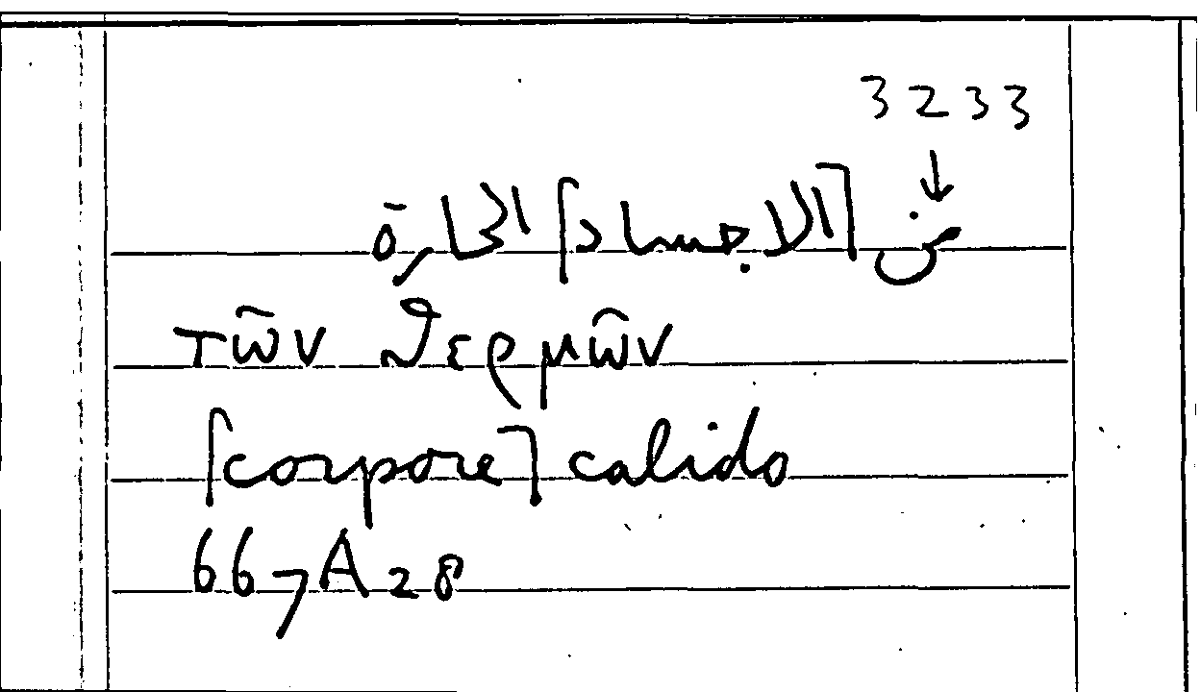 3233
↓
من ⌈الاجساد⌉ الحارة
τῶν θερμῶν
⌈corpore⌉ calido
667A28